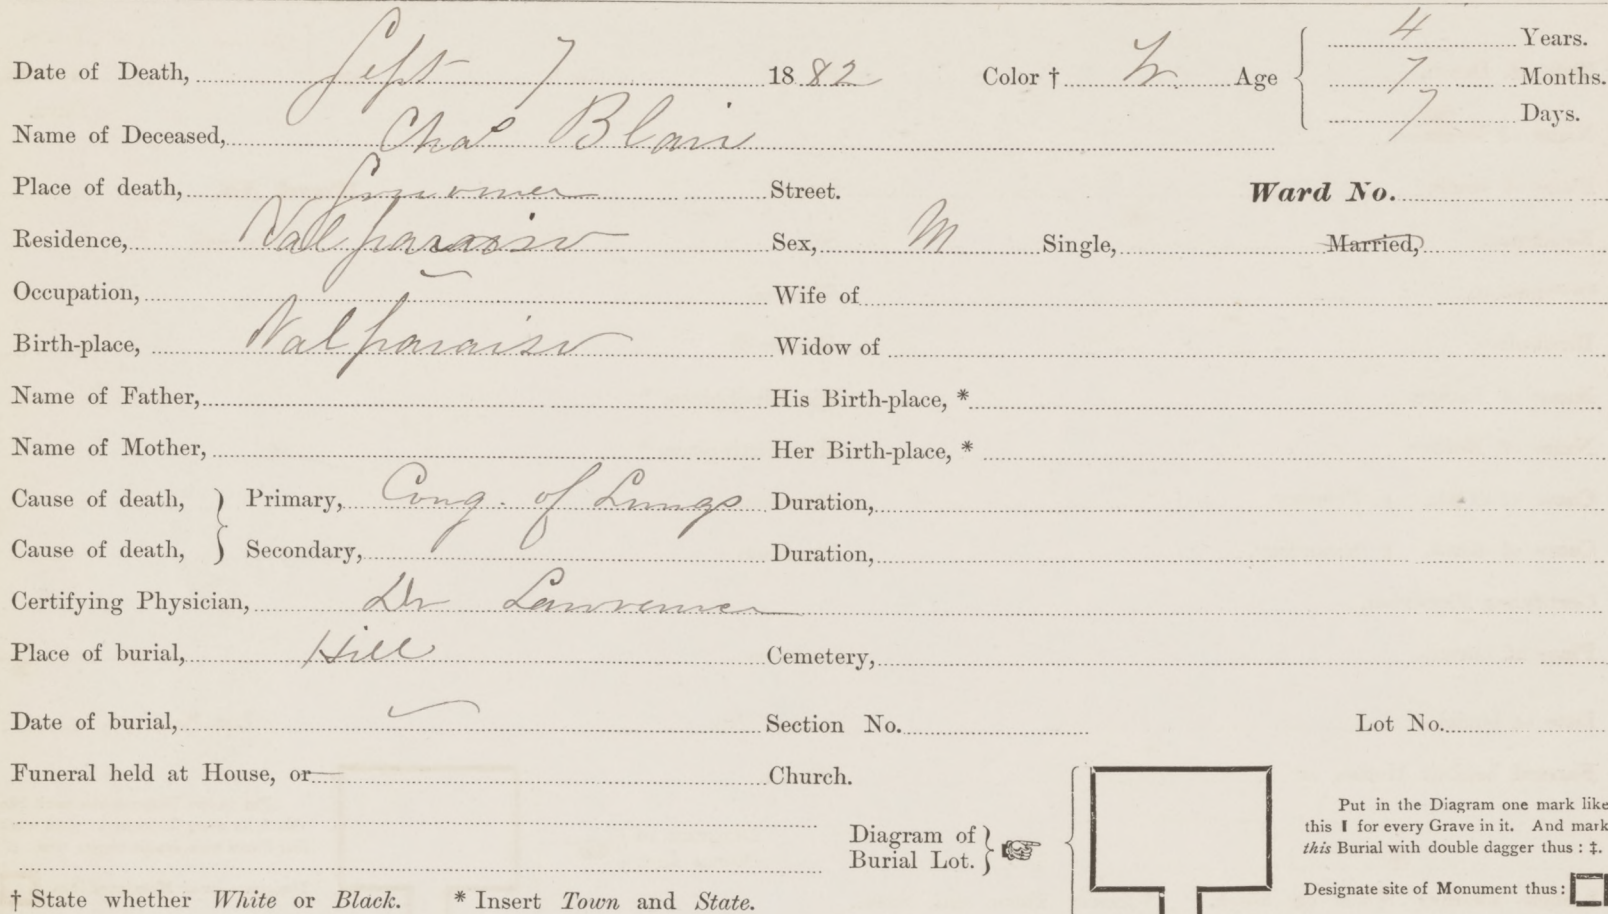 Date of Death, Sept 7 1882 Color † W. Age 4 Years.
7 Months.
7 Days.
Name of Deceased, Chas Blair
Place of death, Street. Ward No.
Residence, Valparaiso Sex, M Single, Married,
Occupation, Wife of
Birth-place, Valparaiso Widow of
Name of Father, His Birth-place, *
Name of Mother, Her Birth-place, *
Cause of death, } Primary, Cong. of Lungs Duration,
Cause of death, } Secondary, Duration,
Certifying Physician, Dr Lawrence
Place of burial, Hill Cemetery,
Date of burial, Section No. Lot No.
Funeral held at House, or Church.
Diagram of
Burial Lot. }
Put in the Diagram one mark like
this I for every Grave in it. And mark
this Burial with double dagger thus : ‡.
Designate site of Monument thus :
† State whether White or Black. * Insert Town and State.